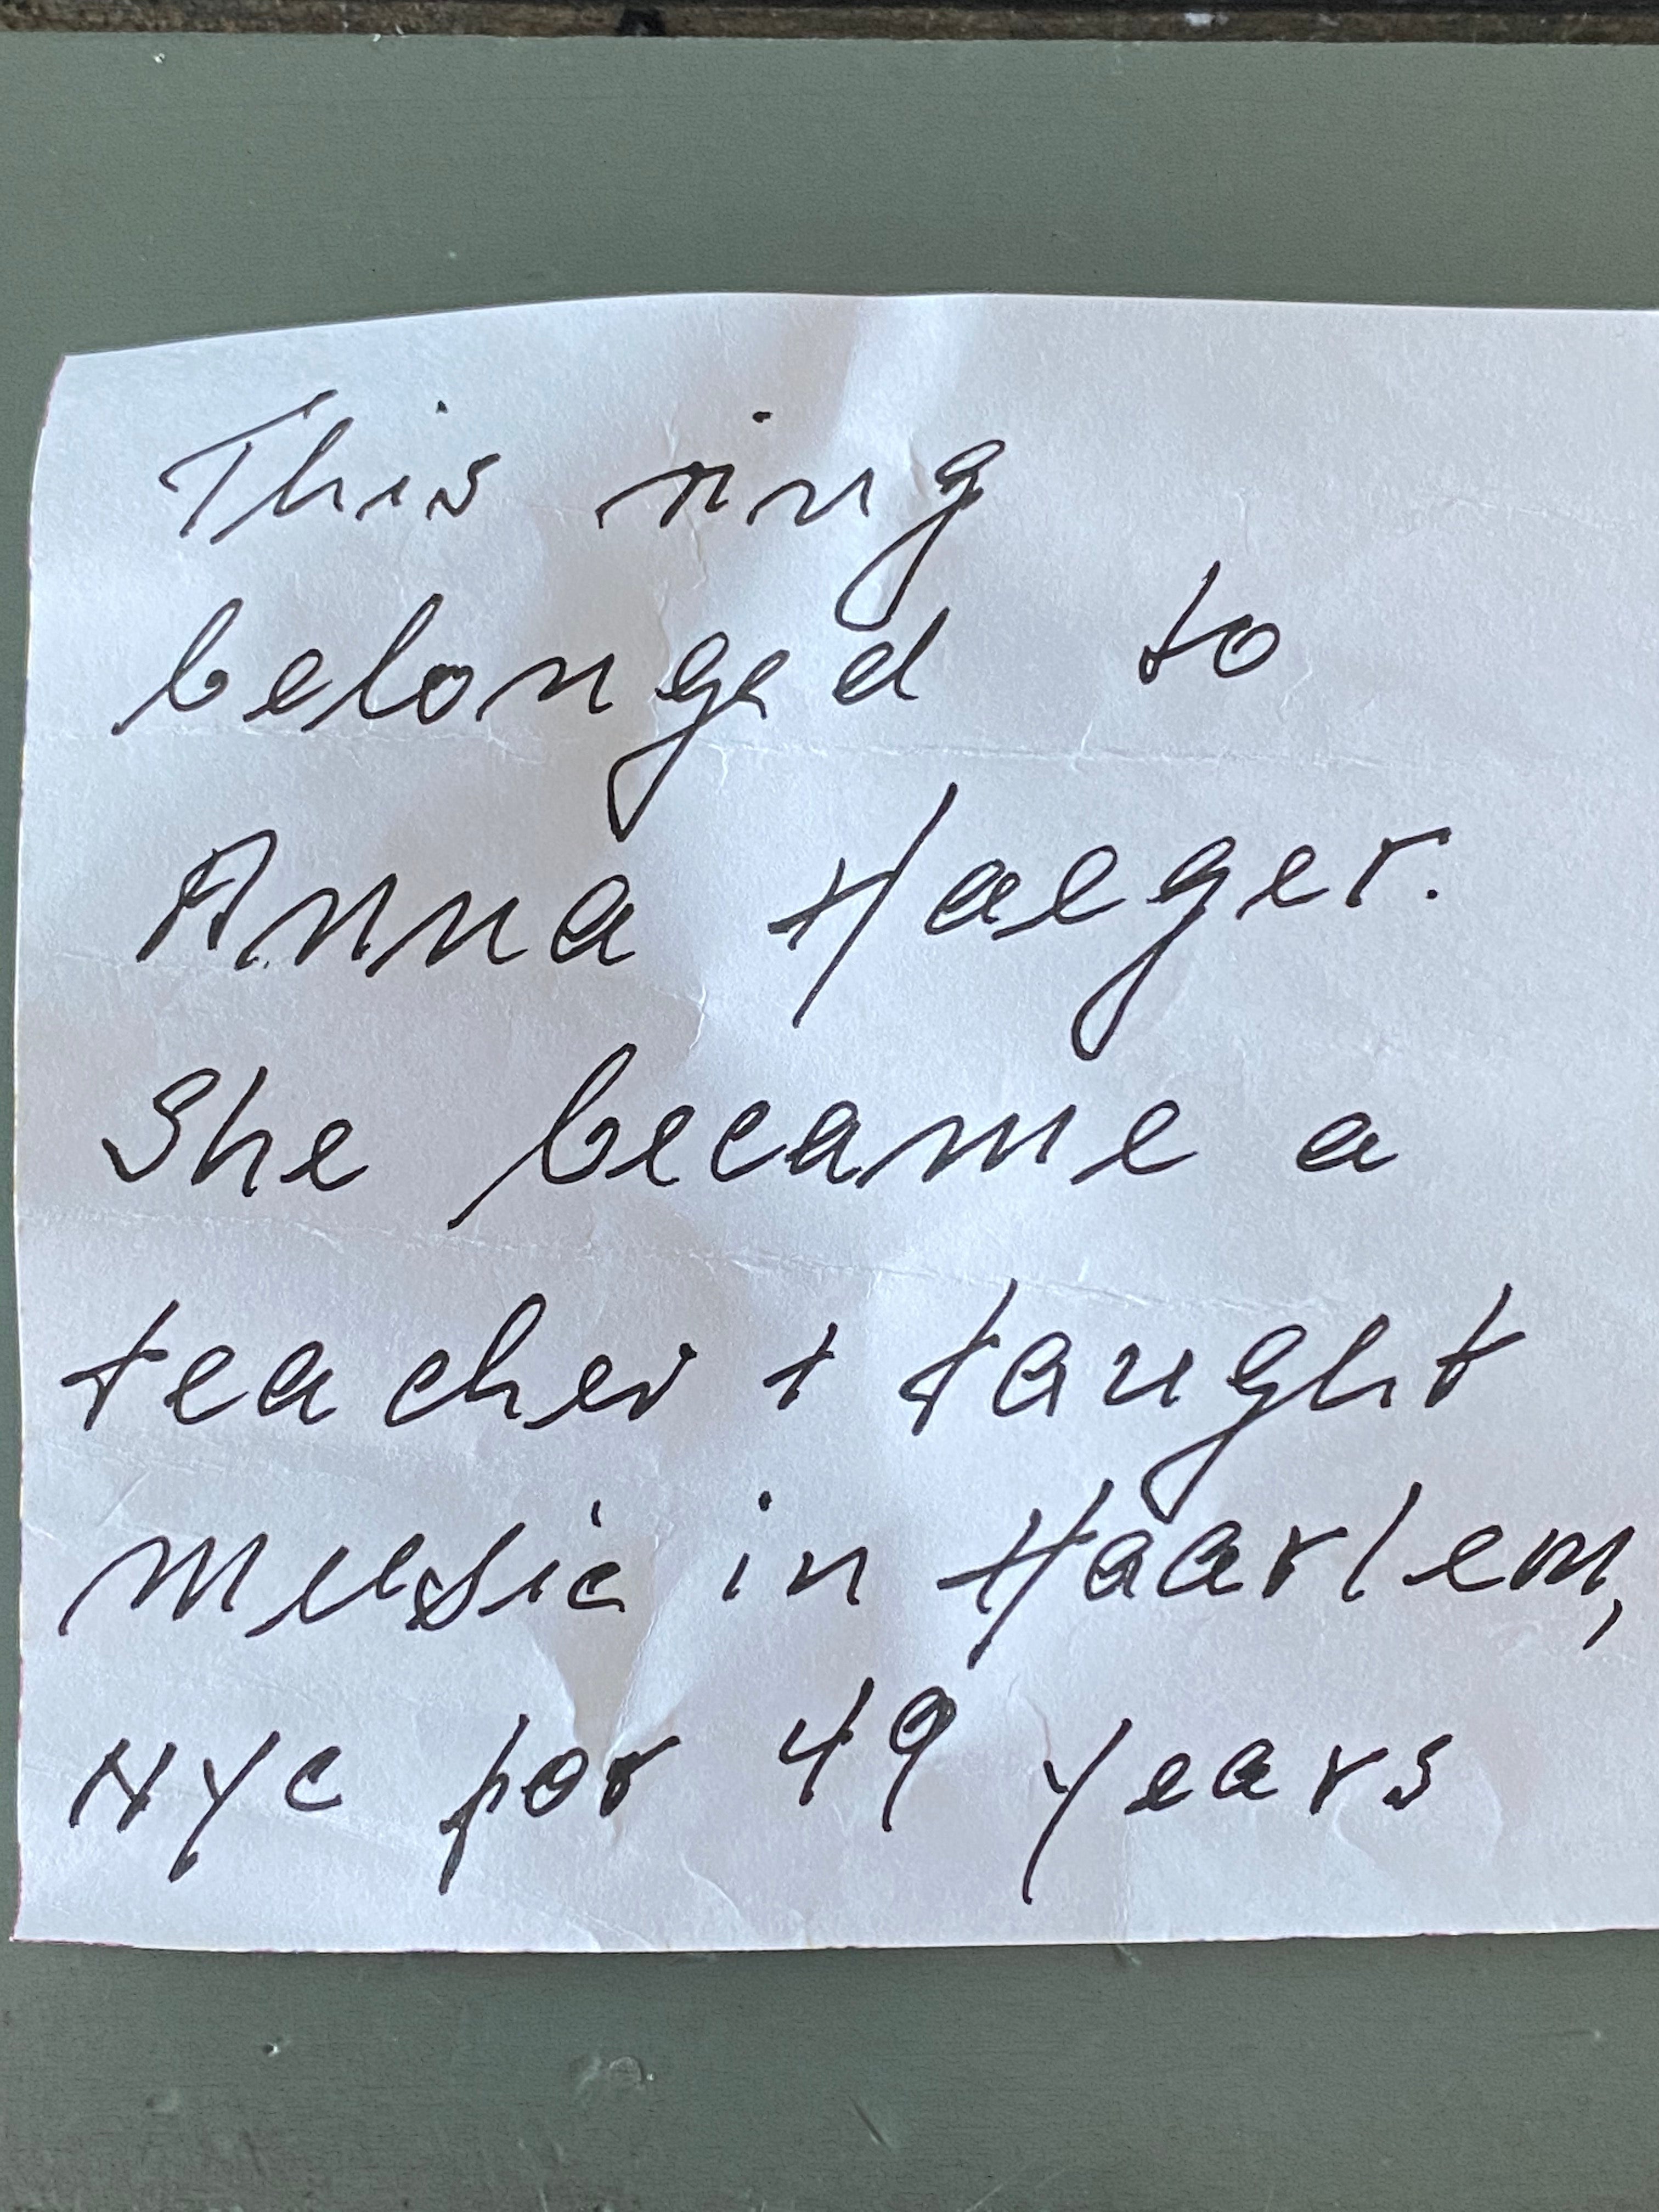 This ring
belonged to
Anna Haeger.
She became a
teacher + taught
music in Haarlem,
NYC for 49 years